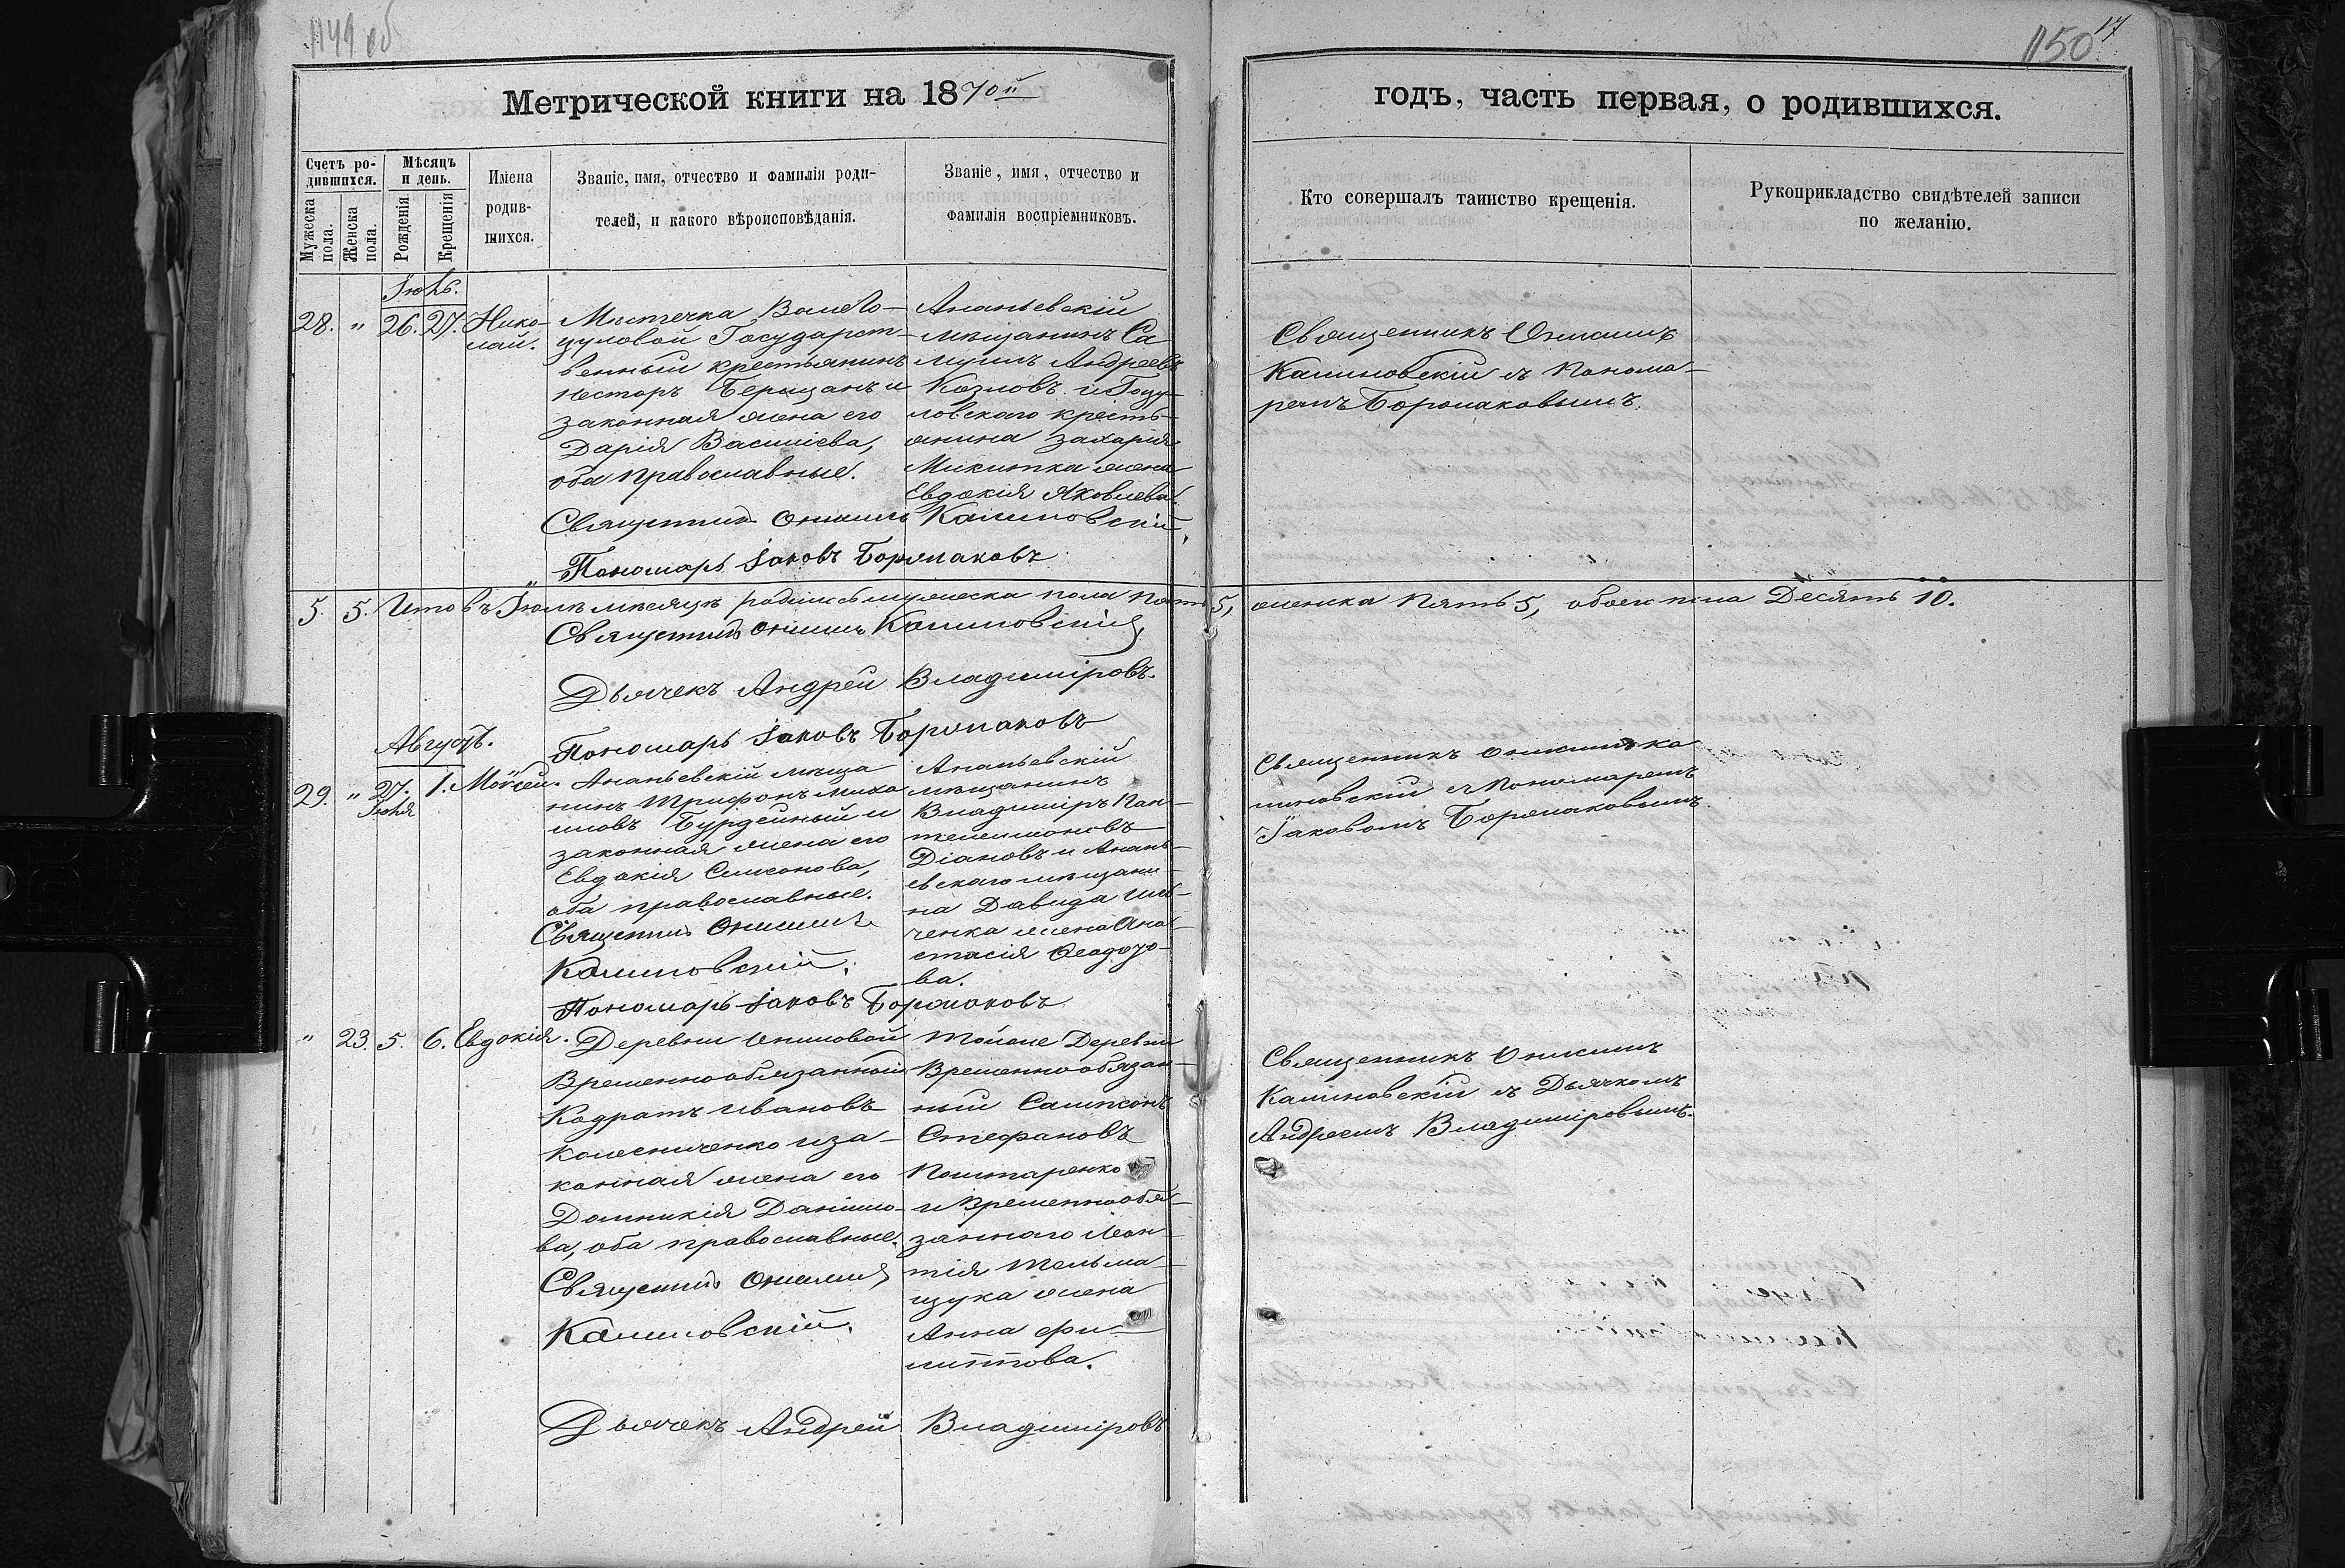 1149 об
1150 17
Метрической книги на 1870й
годъ, часть первая, о родившихся.
Счетъ ро-
дившихся.
Мужеска пола.
Женска пола.
Мѣсяцъ
и день.
Рожденія
Крещенія
Имена
родив-
шихся.
Званіе, имя, отчество и фамилія роди-
телей, и какого вѣроисповѣданія.
Званіе, имя, отчество и
фамилія воспріемниковъ.
Кто совершалъ таинство крещенія.
Рукоприкладство свидѣтелей записи
по желанію.
Іюль.
28. " 26. 27. Нико-
лай.
Мѣстечка
цуловой Государст-
венный крестьянинъ
Несторъ и
законная жена его
Дарія Василіева,
оба православные.
Ананьевскій
мѣщанинъ Са
муилъ Андреевъ
Козловъ и Гоцу-
ловскаго кресть-
янина Захарія
Микитка жена
Евдокія Яковлева.
Священникъ Онисимъ
Калиновскій съ Понома-
ремъ
Священникъ Онисимъ Калиновскій,
Пономарь Іаковъ
5. 5. Итого въ Іюлѣ мѣсяцѣ родилось мужеска пола пять 5, женска пять 5, обоего пола Десять 10.
Священникъ Онисимъ Калиновскій,
Дьячекъ Андрей Владиміровъ.
Пономарь Іаковъ
Августъ.
29. " 27. 1. Моѵсей.
Іюля
Ананьевскій мѣща
нинъ Трифонъ Миха
иловъ Бурдейный и
законная жена его
Евдокія Симеонова,
оба православные.
Священникъ Онисимъ
Калиновскій.
Пономарь Іаковъ
Ананьевскій
мѣщанинъ
Владиміръ Пан-
телеимоновъ
Діановъ и Анань-
евскаго мѣщани-
на Давида Иль-
ченка жена Ана-
стасія Ѳеодоро-
ва.
Священникъ Онисимъ Ка
линовскій съ Пономаремъ
Іаковомъ
" 23. 5. 6. Евдокія.
Деревни
Временнообязанный
Кодратъ Ивановъ
Колесниченко и за-
конная жена его
Домникія Даніило-
ва, оба православные.
Священникъ Онисимъ
Калиновскій.
Тойже Деревни
Временнообязан-
ный Сампсонъ
Стефановъ
и Временнообя-
заннаго Леон-
тія Тельма-
щука жена
Анна Фи-
липпова.
Священникъ Онисимъ
Калиновскій съ Дьячкомъ
Андреемъ Владиміровымъ.
Дьячекъ Андрей Владиміровъ